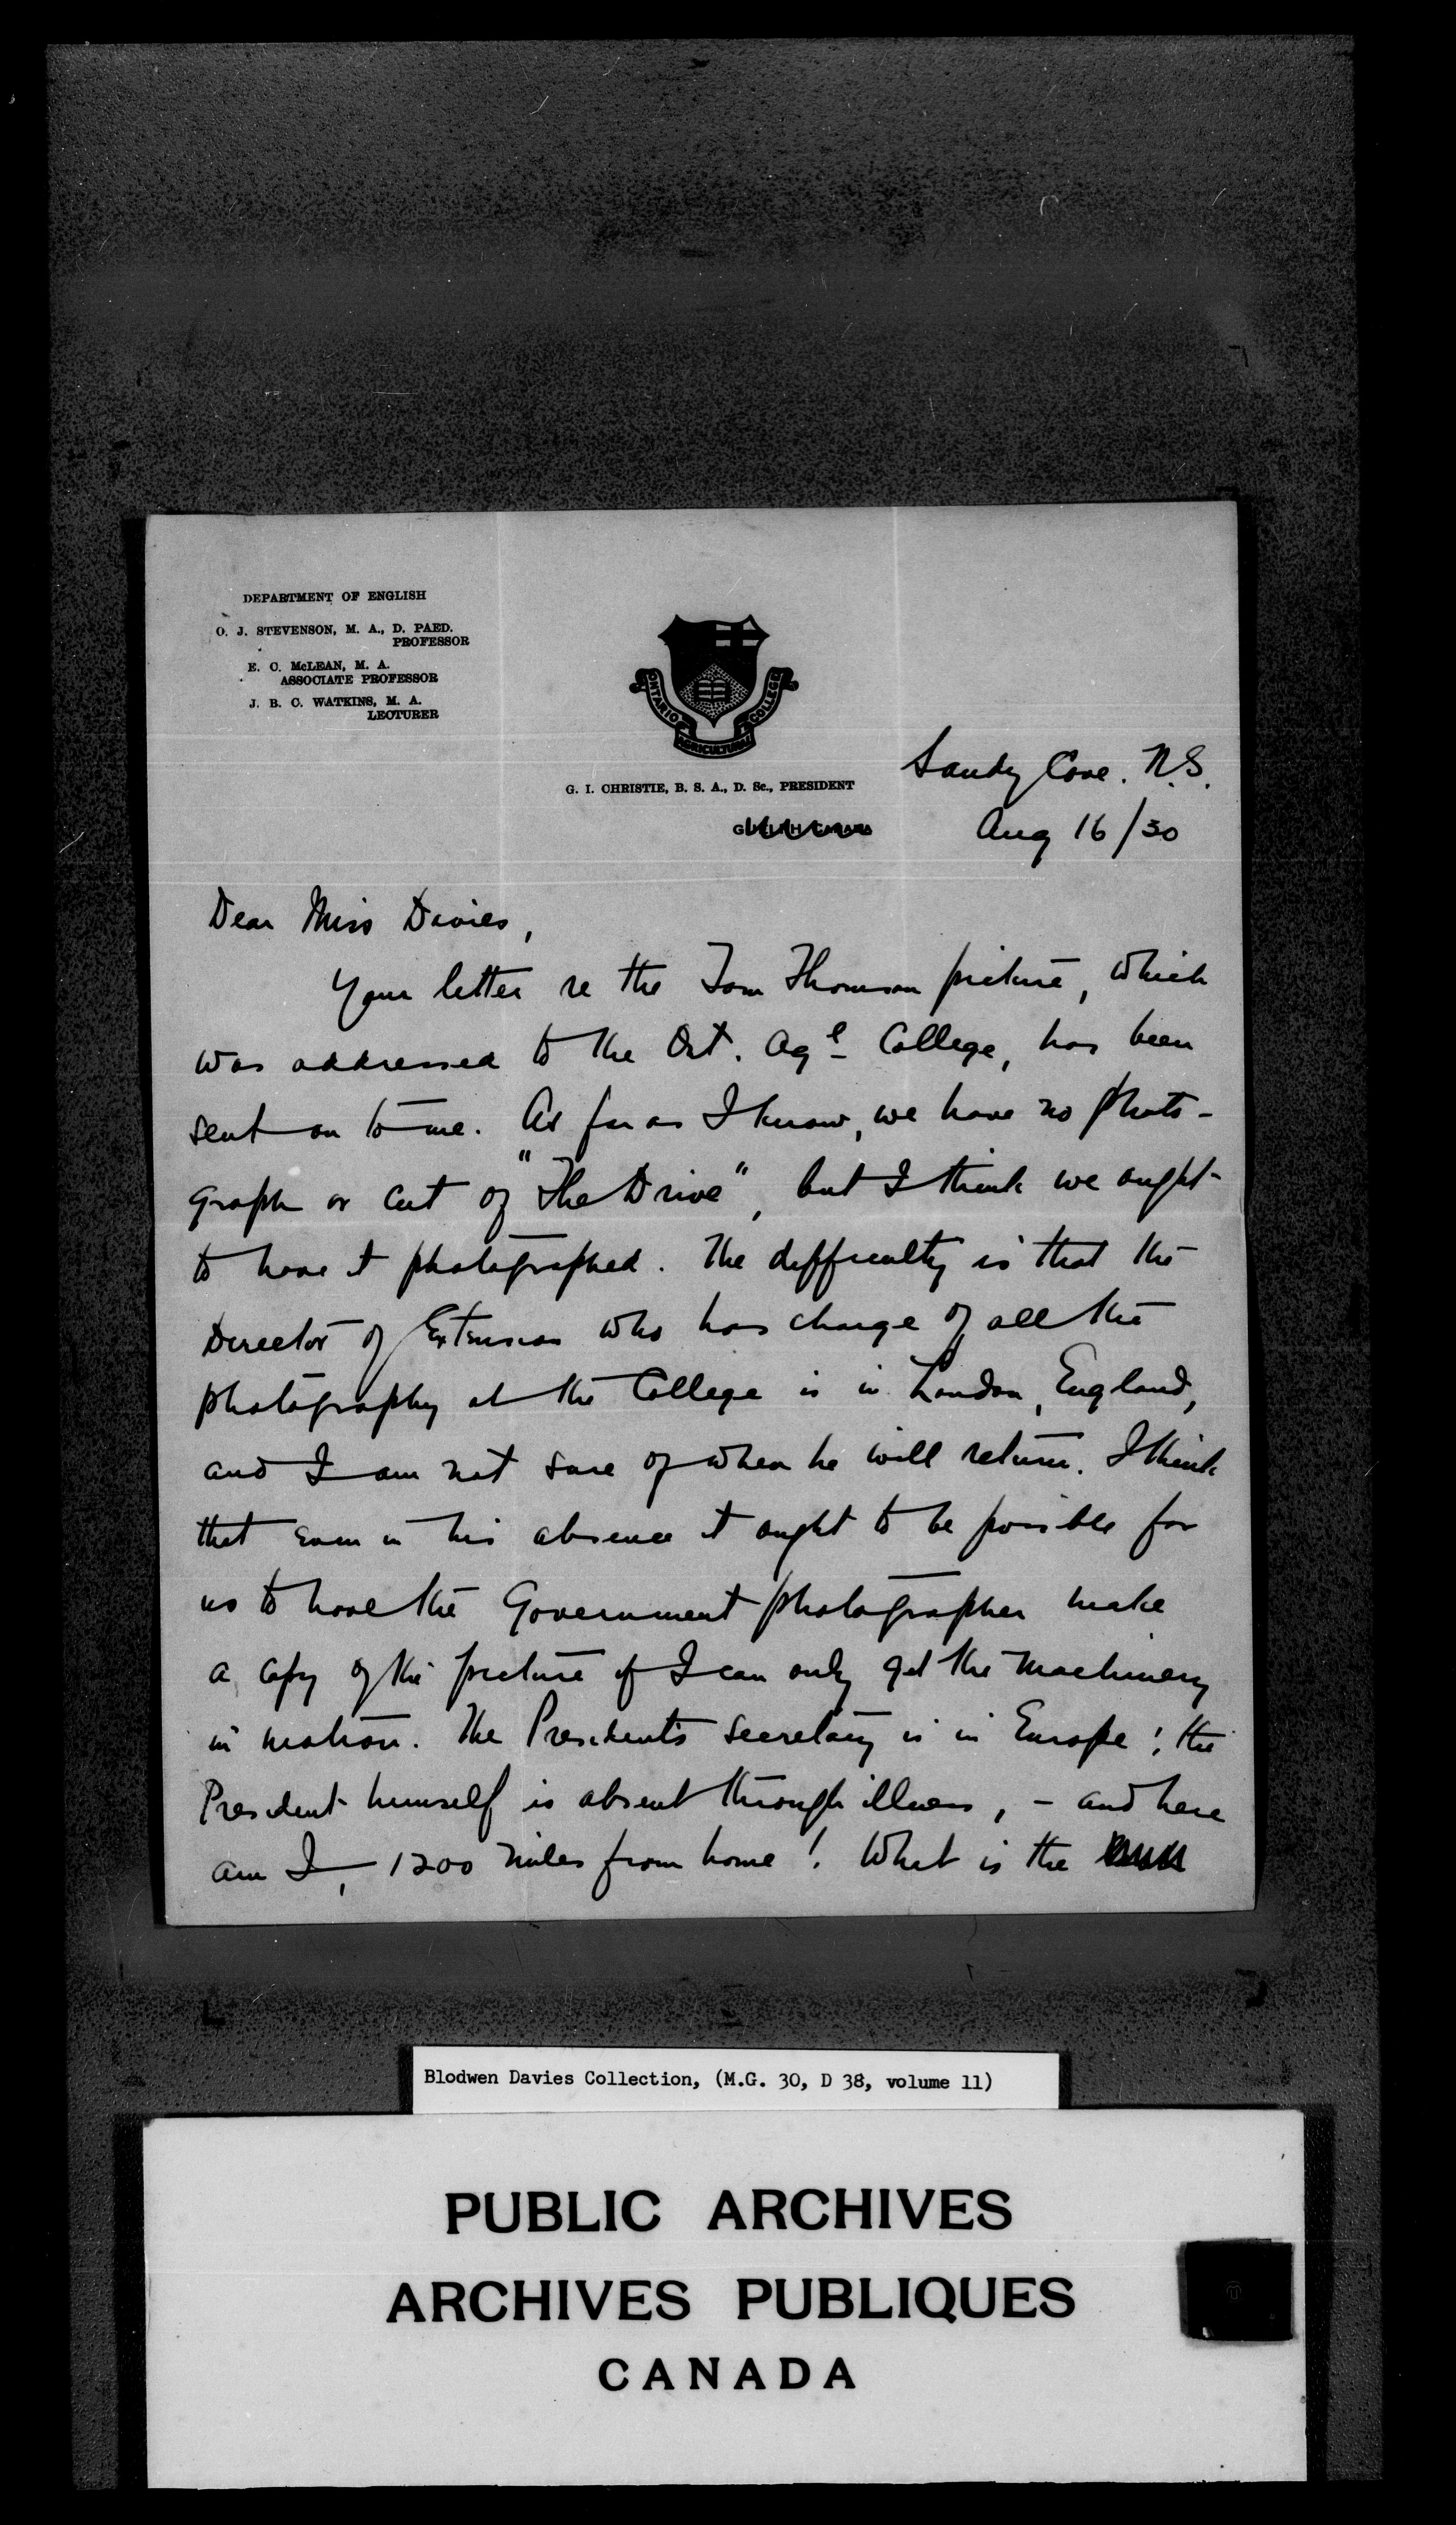 DEPARTMENT OF ENGLISH
O. J. STEVENSON, M. A., D. PAED.
PROFESSOR
E. C. McLEAN, M. A.
ASSOCIATE PROFESSOR
J. B. C. WATKINS, M. A.
LECTURER
ONTARIO AGRICULTURAL COLLEGE
G. I. CHRISTIE, B. S. A., D. Sc., PRESIDENT
GUELPH CANADA
Sandy Cove. N.S.
Aug 16/30
Dear Miss Davies,
Your letter re the Tom Thomson picture, which
was addressed to the Ont. Agl College, has been
sent on to me. As far as I know, we have no photo-
graph or cut of "The Drive", but I think we ought
to have it photographed. The difficulty is that the
Director of Extension who has charge of all the
photography at the College is in London, England,
and I am not sure of when he will return. I think
that even in his absence it ought to be possible for
us to have the Government photographer make
a copy of the picture if I can only get the machinery
in motion. The President's secretary is in Europe; the
President himself is absent through illness, - and here
am I, 1200 miles from home! What is the
Blodwen Davies Collection, (M.G. 30, D 38, volume 11)
PUBLIC ARCHIVES
ARCHIVES PUBLIQUES
CANADA